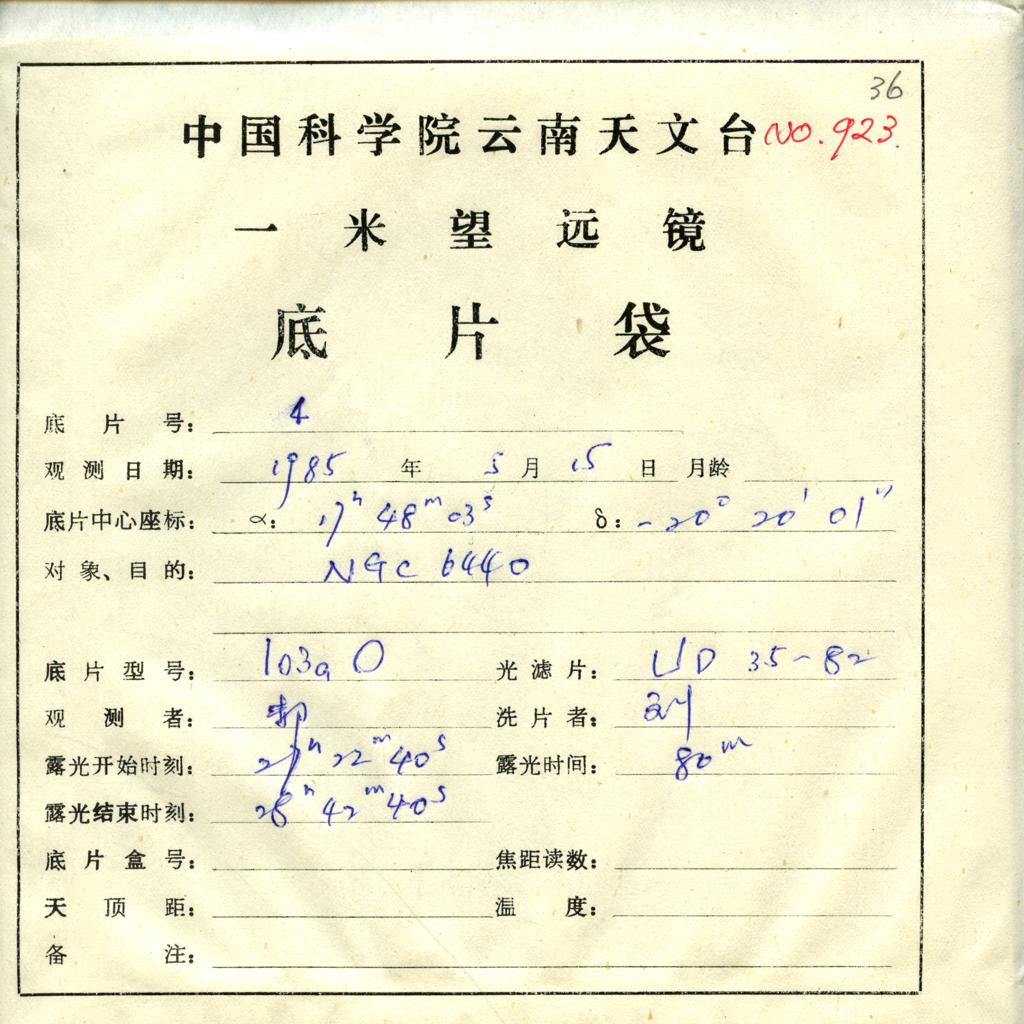 36
中国科学院云南天文台 NO.923.
一米望远镜
底片袋
底片号: 4
观测日期: 1985 年 5 月 15 日 月龄
底片中心座标: α: 17h 48m 03s δ: -20° 20′ 01″
对象、目的: NGC 6440
底片型号: 103a O 光滤片: UD 35-82
观测者: 洗片者: 刘
露光开始时刻: 27h 22m 40s 露光时间: 80m
露光结束时刻: 28h 42m 40s
底片盒号: 焦距读数:
天顶距: 温度:
备注: